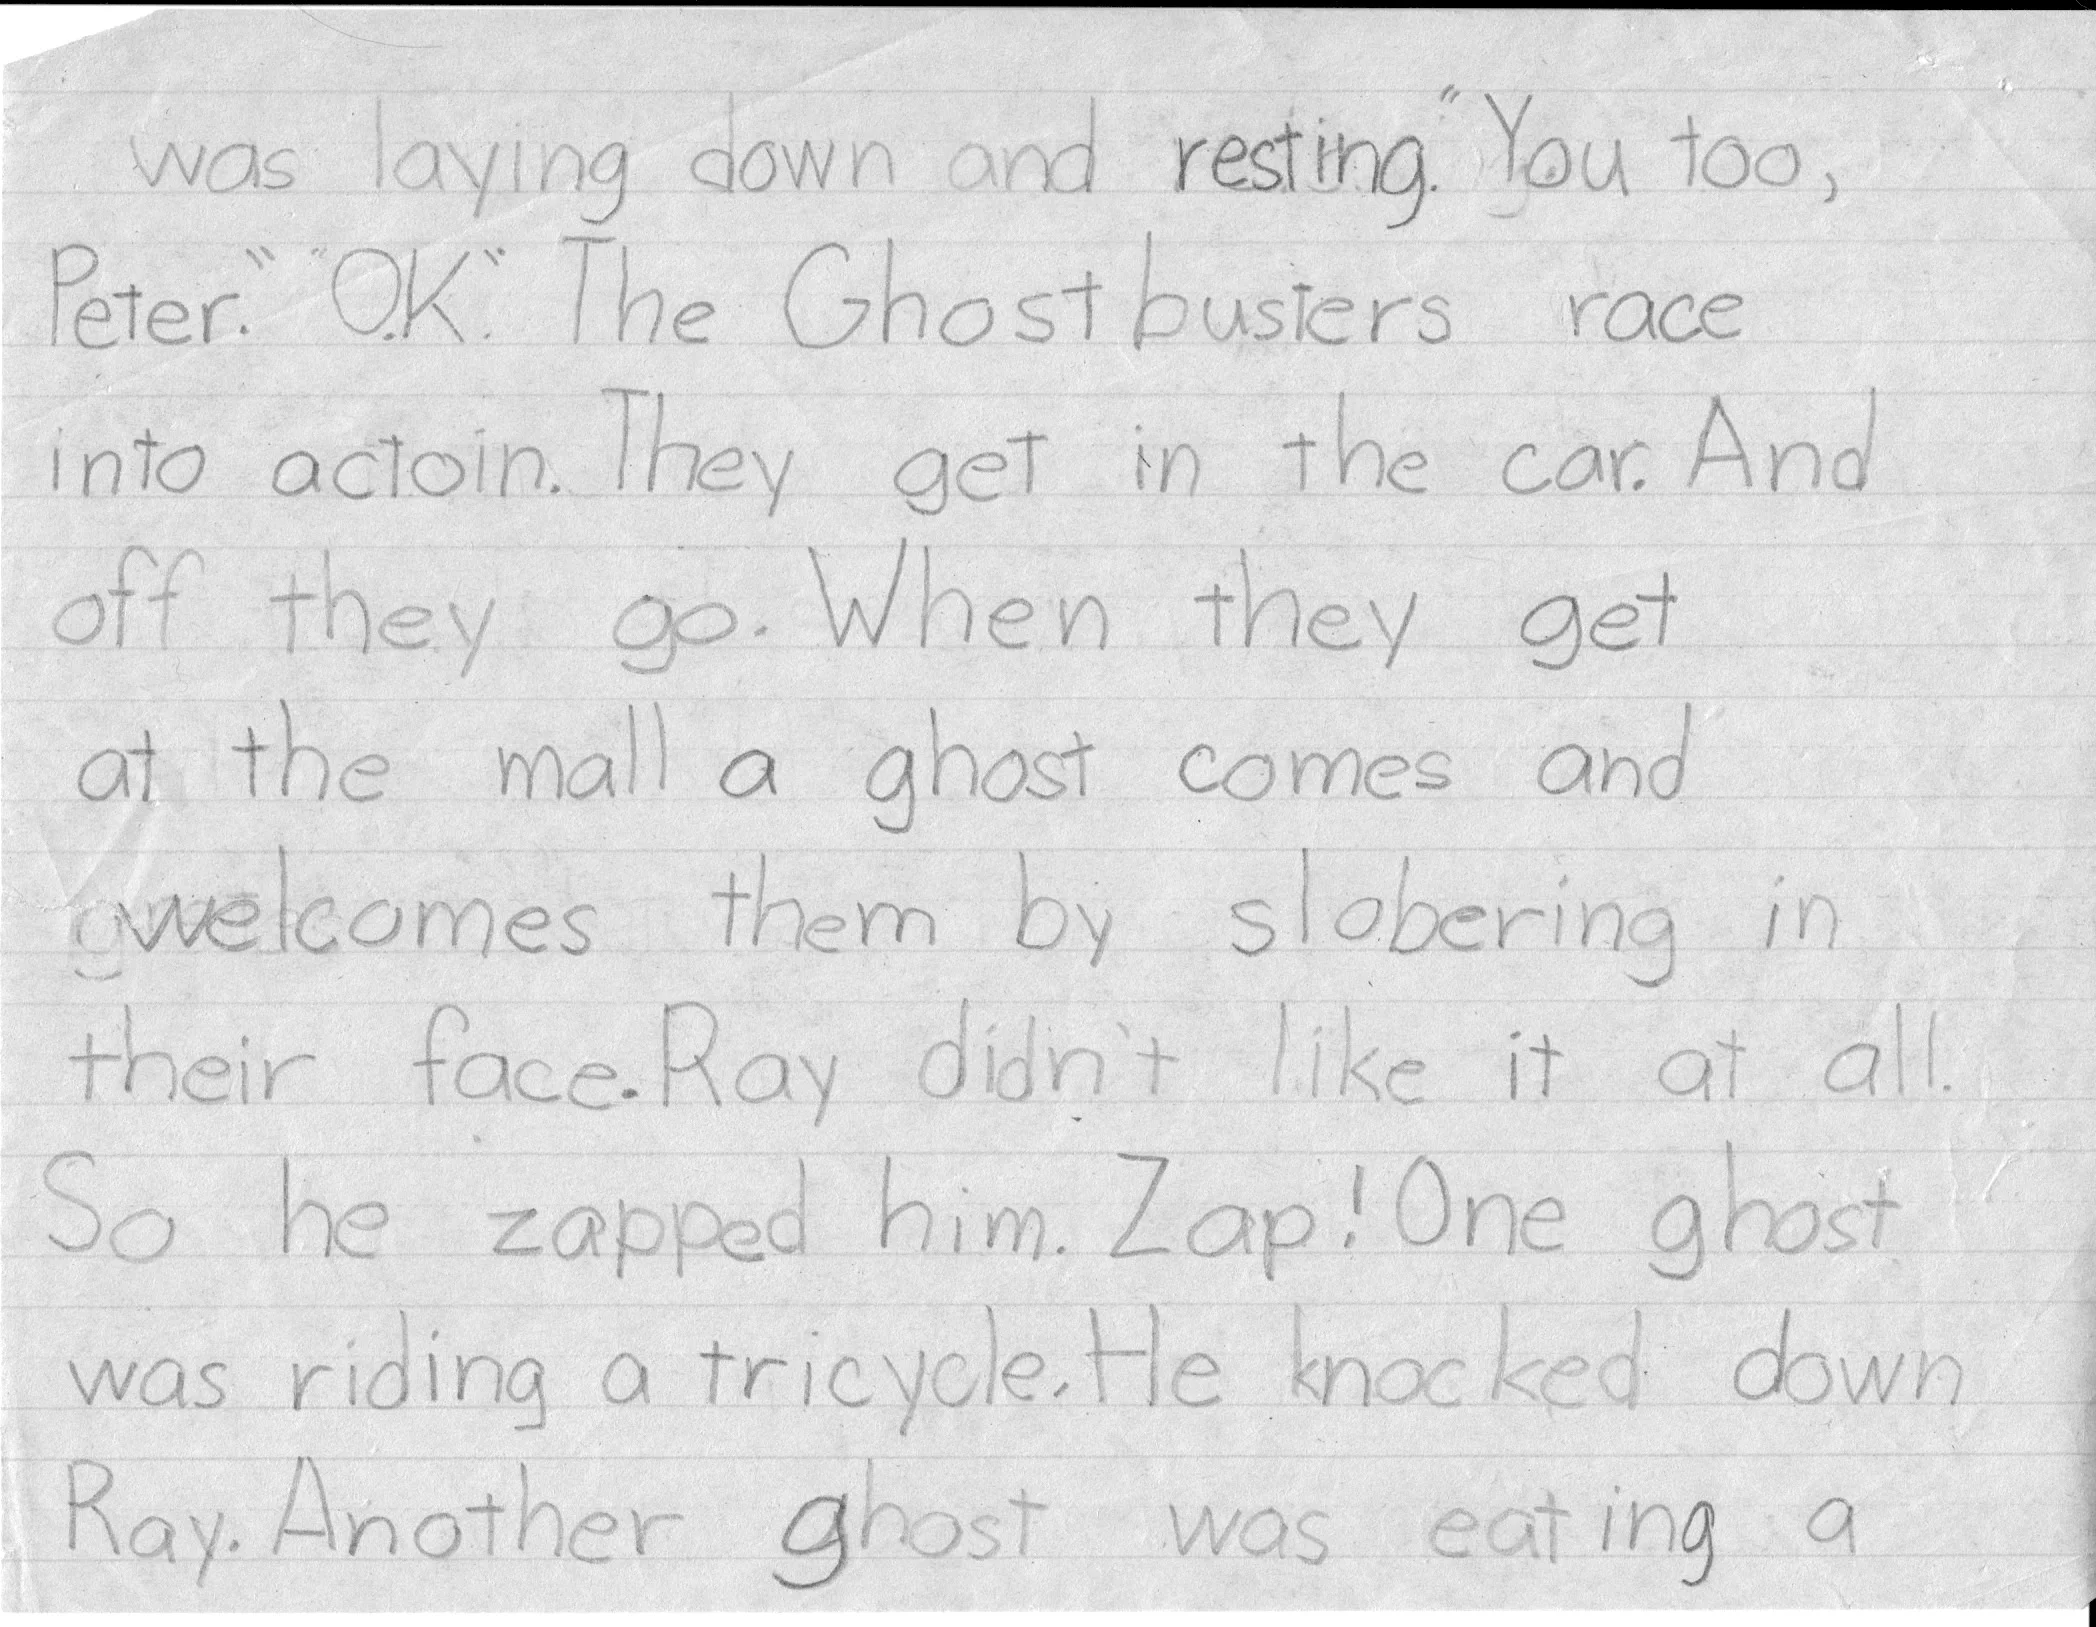 was laying down and resting. "You too,
Peter." "O.K". The Ghostbusters race
into actoin. They get in the car. And
off they go. When they get
at the mall a ghost comes and
welcomes them by slobering in
their face. Ray didn't like it at all.
So he zapped him. Zap! One ghost
was riding a tricycle. He knocked down
Ray. Another ghost was eating a